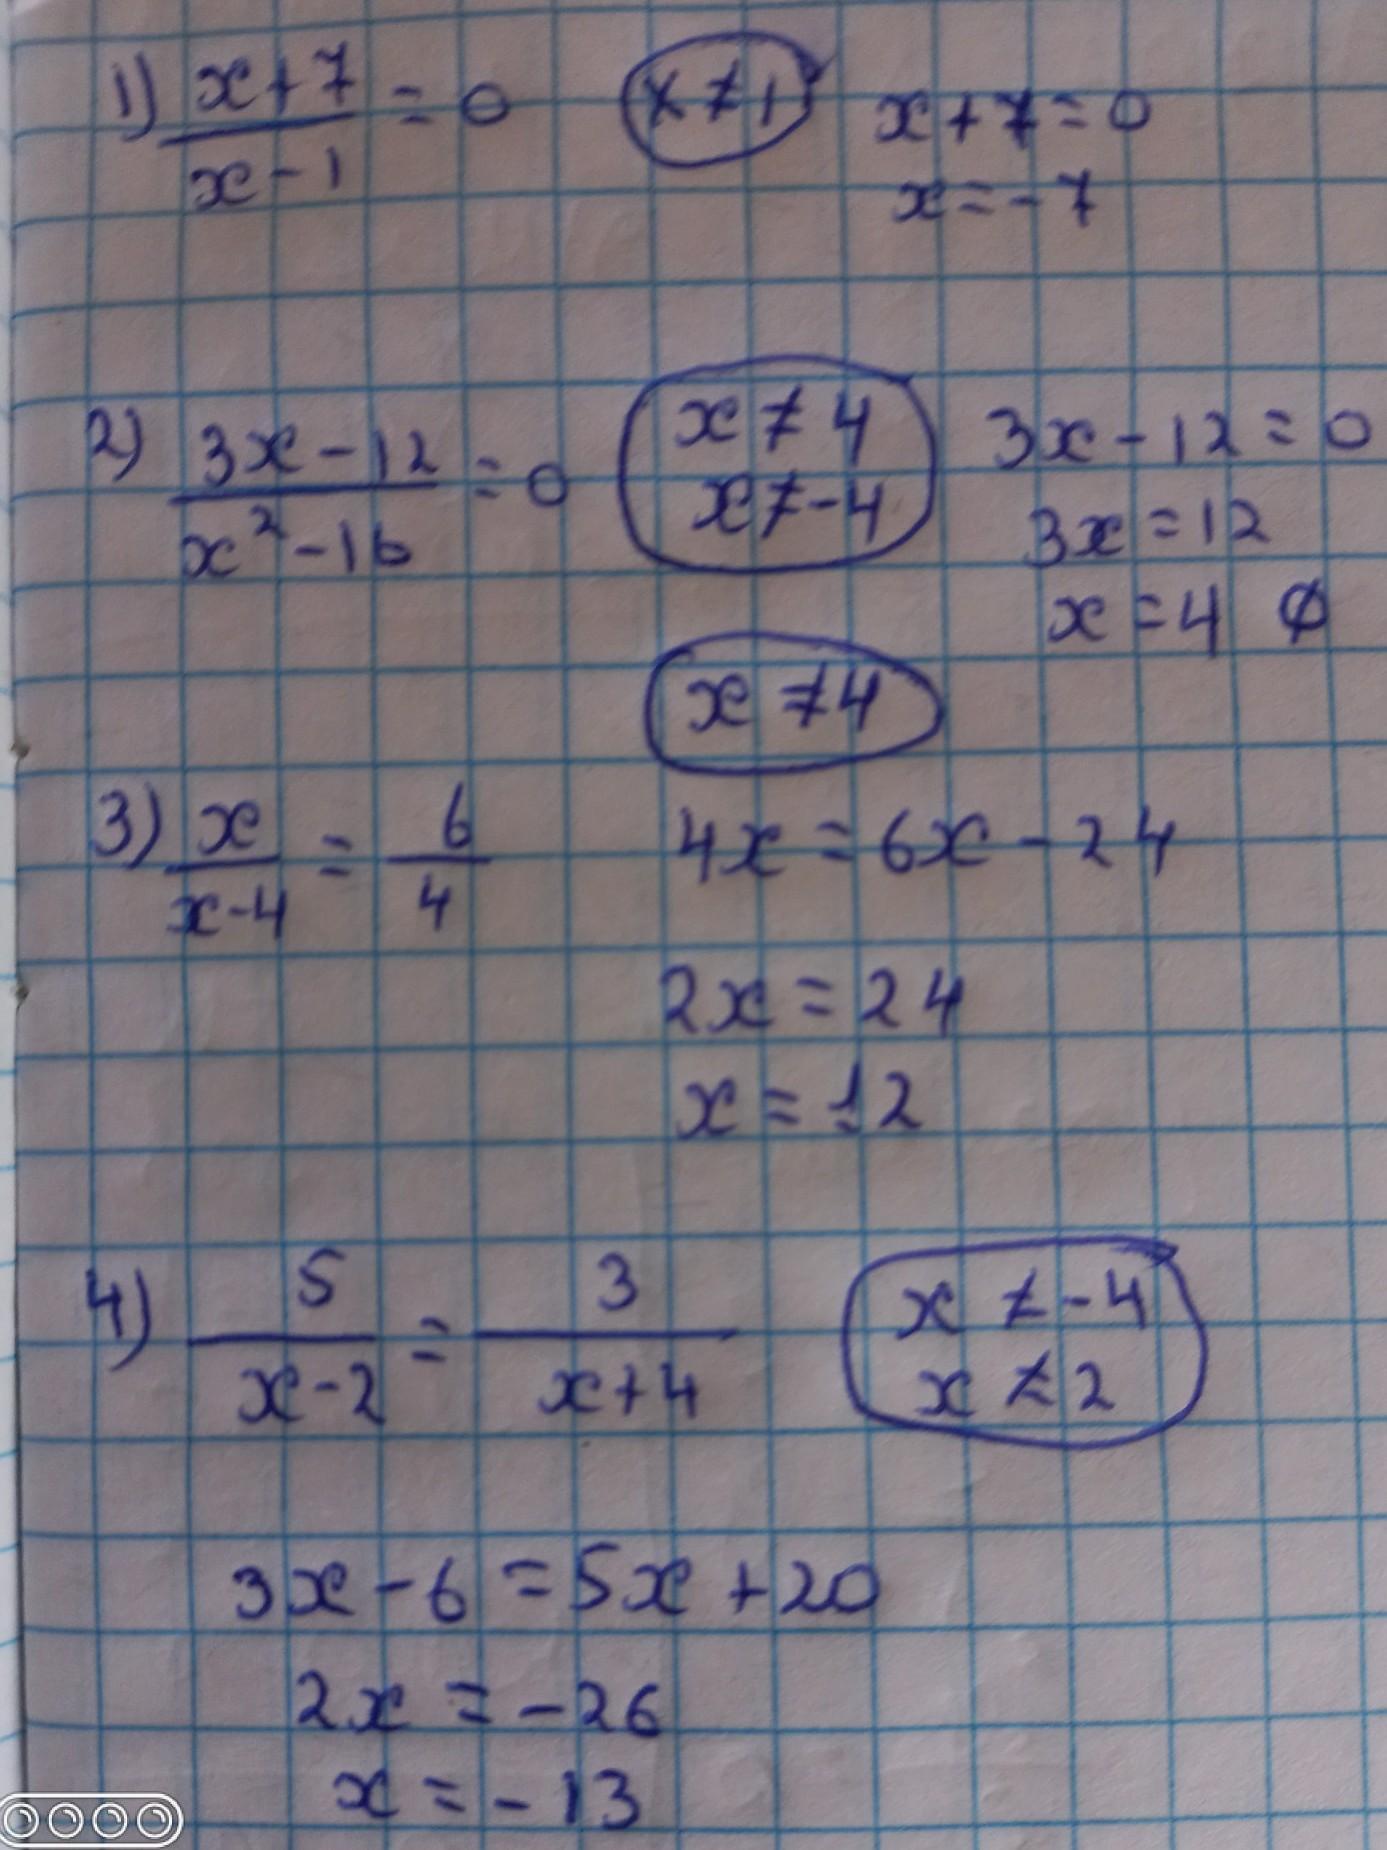 1) (x+7)/(x-1) = 0   x ≠ 1   x+7=0
x=-7
2) (3x-12)/(x²-16) = 0   x ≠ 4   3x-12=0
x ≠ -4   3x=12
x=4 ∅
x ≠ 4
3) x/(x-4) = 6/4   4x=6x-24
2x=24
x=12
4) 5/(x-2) = 3/(x+4)   x ≠ -4
x ≠ 2
3x-6=5x+20
2x=-26
x=-13